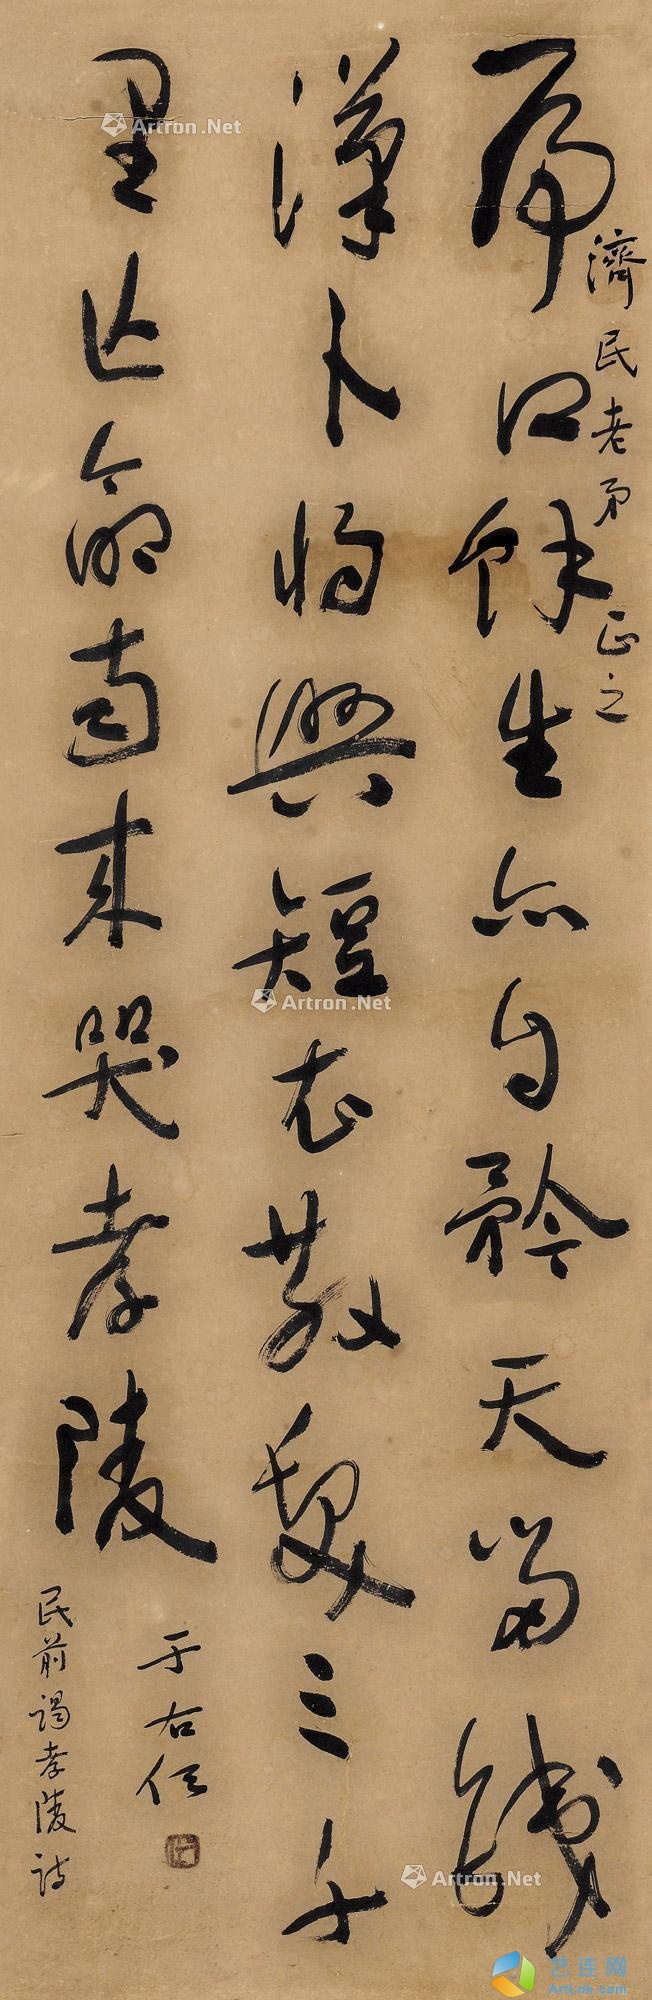 濟民老弟 正之
虎口餘生亦自矜天留鐵
漢卜將興短衣散髮三千
里亡命南來哭孝陵
于右任
民前謁孝陵詩
Artron.Net
Artron.Net
Artron.Net
Artron.Net
艺连网